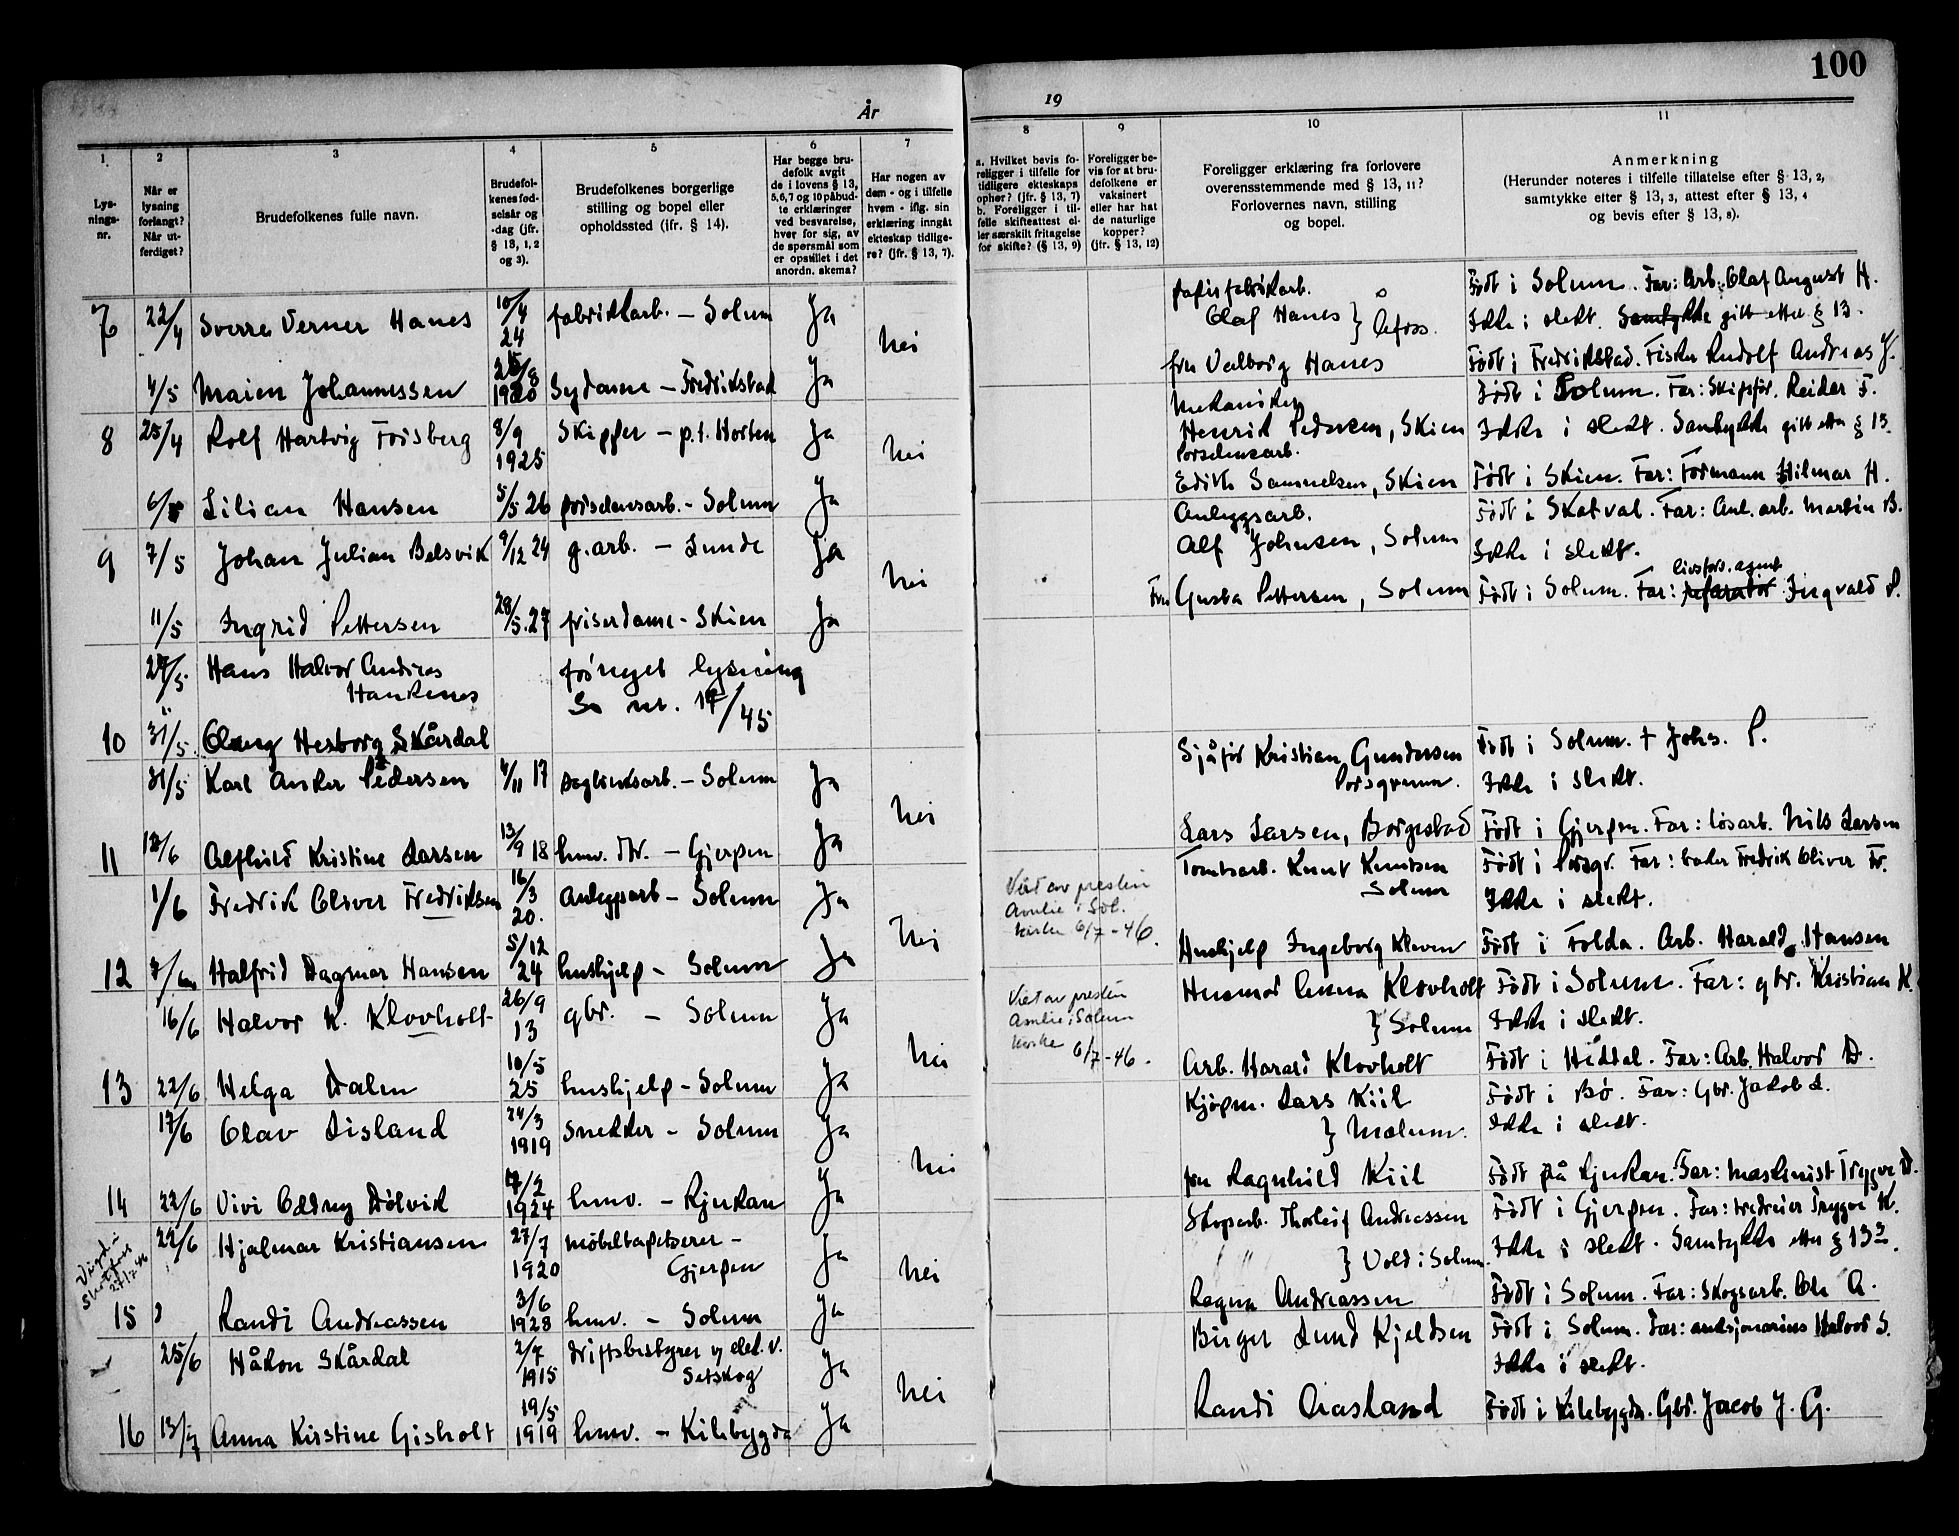 100
År
19
1.
Lys-
nings-
nr.
2
Når er
lysning
forlangt?
Når ut-
ferdiget?
3
Brudefolkenes fulle navn.
4
Brudefol-
kenes fød-
selsår og
-dag (jfr.
§ 13, 1, 2
og 3).
5
Brudefolkenes borgerlige
stilling og bopel eller
opholdssted (jfr. § 14).
6
Har begge bru-
defolk avgit
de i lovens § 13,
5,6,7 og 10 påbud-
te erklæringer
ved besvarelse,
hver for sig, av
de spørsmål som
er opstillet i det
anordn. skema?
7
Har nogen av
dem - og i tilfelle
hvem - iflg. sin
erklæring inngått
ekteskap tidlige-
re? (jfr. § 13, 7).
8
a. Hvilket bevis fo-
religger i tilfelle for
tidligere ekteskaps
ophør? (jfr. § 13, 7)
b. Foreligger i til-
felle skifteattest el-
ler særskilt fritagelse
for skifte? (§ 13, 9)
9
Foreligger be-
vis for at bru-
defolkene er
vaksinert
eller har hat
de naturlige
kopper?
(jfr. § 13, 12)
10
Foreligger erklæring fra forlovere
overensstemmende med § 13, 11?
Forlovernes navn, stilling
og bopel.
11
Anmerkning
(Herunder noteres i tilfelle tillatelse efter § 13, 2,
samtykke efter § 13, 3, attest efter § 13, 4
og bevis efter § 13, 8).
7 22/4 Sverre Verner Hanes 10/4 24 fabrikkarb. - Solum Ja nei
papirfabrikarb.
Olaf Hanes } Åfoss.
Født i Solum. Far: Arb. Olaf August H.
Ikke i slekt. Samtykke gitt etter § 13.
4/5 Maien Johannessen 1920 Sydame - Fredrikstad Ja
fru Valborg Hanes
Født i Fredrikstad. Fisker Rudolf Andreas J.
8 25/4 Rolf Hartvig Forsberg 8/9 1925 Skipper - p.t. Horten Ja nei
Mekaniker
Henrik Pedersen, Skien
Født i Solum. Far: Skipsfør. Reidar F.
Ikke i slekt. Samtykke gitt etter § 13.
Lilian Hansen 5/5 26 porselensarb. - Solum Ja
Porselensarb.
Edith Samuelsen, Skien
Født i Skien. Far: Formann Hilmar H.
9 7/5 Johan Julian Belsvik 9/12 24 g.arb. - Lunde Ja nei
Anleggsarb.
Alf Johnsen, Solum
Født i Skatval. Far: Anl. arb. Martin B.
Ikke i slekt.
11/5 Ingrid Pettersen 28/5.27 friserdame - Skien Ja
Fru Gusta Pettersen, Solum
livsfors. agent
Født i Solum. Far: reparatør Ingvald P.
27/5 Hans Halvor Andreas
Hankenes
fornyet lysning
Se nr. 17/45
10 31/5 Olaug Hesborg Skårdal
31/5 Karl Anker Pedersen 4/11 17 Dagbruksarb. - Solum Ja nei
Sjåfør Kristian Gundersen
Porsgrunn.
Født i Solum. + Johs. P.
Ikke i slekt.
11 12/6 Alfhild Kristine Larsen 13/9 18 husv. dtr. - Gjerpen Ja
Lars Larsen, Borgestad
Født i Gjerpen. Far: løsarb. Nils Larsen
1/6 Fredrik Oliver Fredriksen 16/3 20. Anleggsarb - Solum Ja nei
Viet av presten
Amlie i Sol.
kirke 6/7-46.
Tomtearb. Knut Knutsen
Solum
Født i Porsgr. Far: Fredrik Oliver Fr.
Ikke i slekt.
12 7/6 Halfrid Dagmar Hansen 5/12 24 hushjelp - Solum Ja
Hushjelp Ingeborg Kleven
Født i Folda. Arb. Harald Hansen
16/6 Halvor K. Klovholt 26/9 13 gbr. - Solum Ja nei
Viet av presten
Amlie i Solum
kirke 6/7-46.
Husmor Anna Klovholt
} Solum
Født i Solum. Far: gbr. Kristian K.
Ikke i slekt.
13 22/6 Helga Dalen 10/5 25 hushjelp - Solum Ja
Arb. Harald Klovholt
Født i Hiddal. Far: Arb. Halvor D.
17/6 Olav Lisland 24/3 1919 Snekker - Solum Ja nei
Kjøpm. Lars Kiil
} Mælum.
Født i Bø. Far: Gbr. Jakob L.
Ikke i slekt.
14 22/6 Vivi Oddny Dølvik 1924 husv. - Rjukan Ja
fru Ragnhild Kiil
Født på Rjukan. Far: maskinist Trygve D.
22/6 Hjalmar Kristiansen 27/7 1920 Møbeltapetserer -
Gjerpen Ja nei
Skogsarb. Thorleif Andreassen
} Vold i Solum.
Født i Gjerpen. Far: Trygve K.
Ikke i slekt. Samtykke etter § 13
15 Randi Andreassen 3/6 1928 husv. - Solum Ja
Ragna Andreassen
Født i Solum. Far: Skogsarb. Ole A.
25/6 Håkon Skårdal 2/7 1915 Driftsbestyrer v/ elekt. v.
Setskog Ja nei
Birger Lund Kjeldsen
Født i Solum. Far: auksjonarius Halvor S.
Ikke i slekt.
16 13/7 Anna Kirstine Gisholt 19/5 1919 husv. - Kilebygda Ja
Randi Aasland
Født i Kilebygda. Gbr. Jacob J. G.